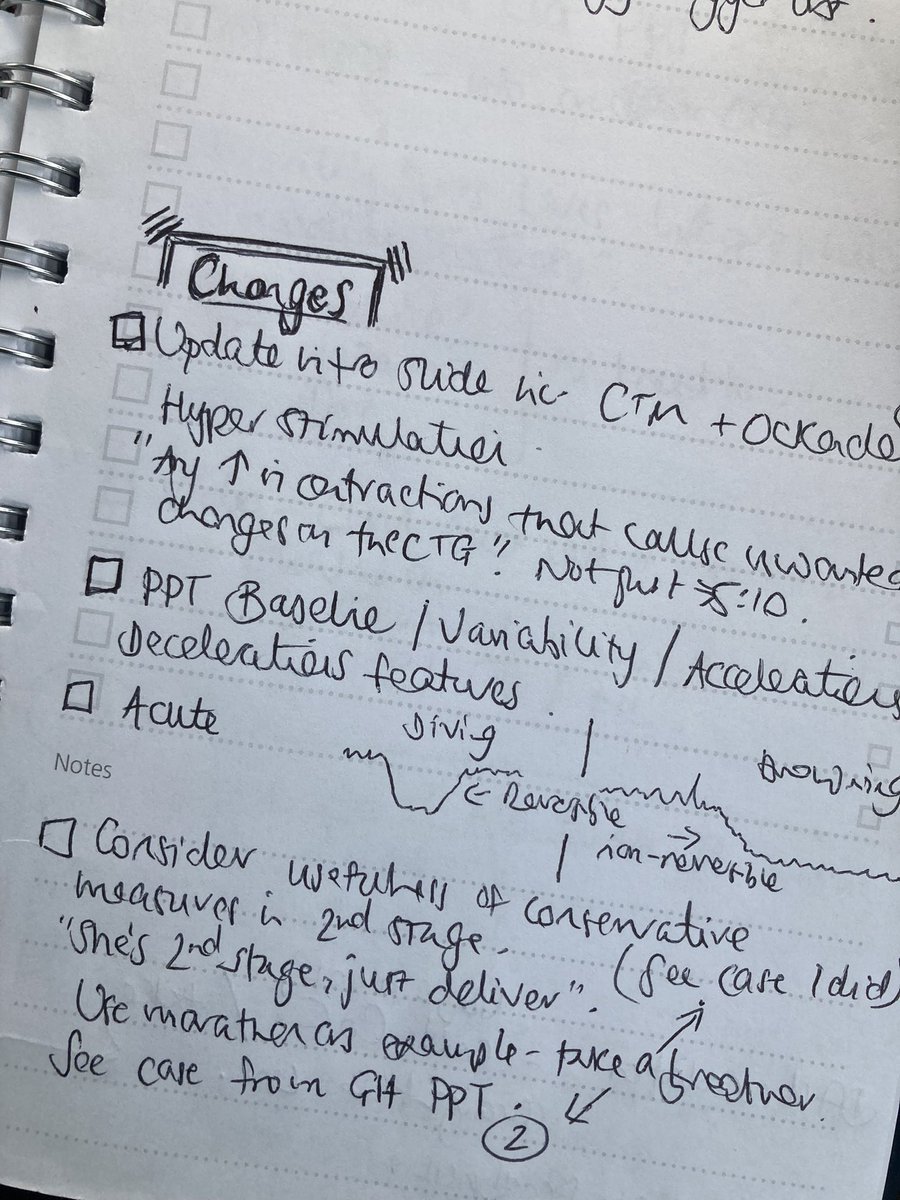 Changes
Update intro slide inc CTM + Ockade
Hyper stimulation.
"Any ↑ in contractions that cause unwanted
changes on the CTG". Not just >5:10.
PPT Baseline / Variability / Accelerations
Decelerations features.
Acute
Diving
Drowning
← Reversible
non-reversible →
Notes
Consider usefulness of conservative
measures in 2nd stage.
"She's 2nd stage, just deliver". (See case I did)
Use marathon as example - take a breather.
See case from GH PPT.
2